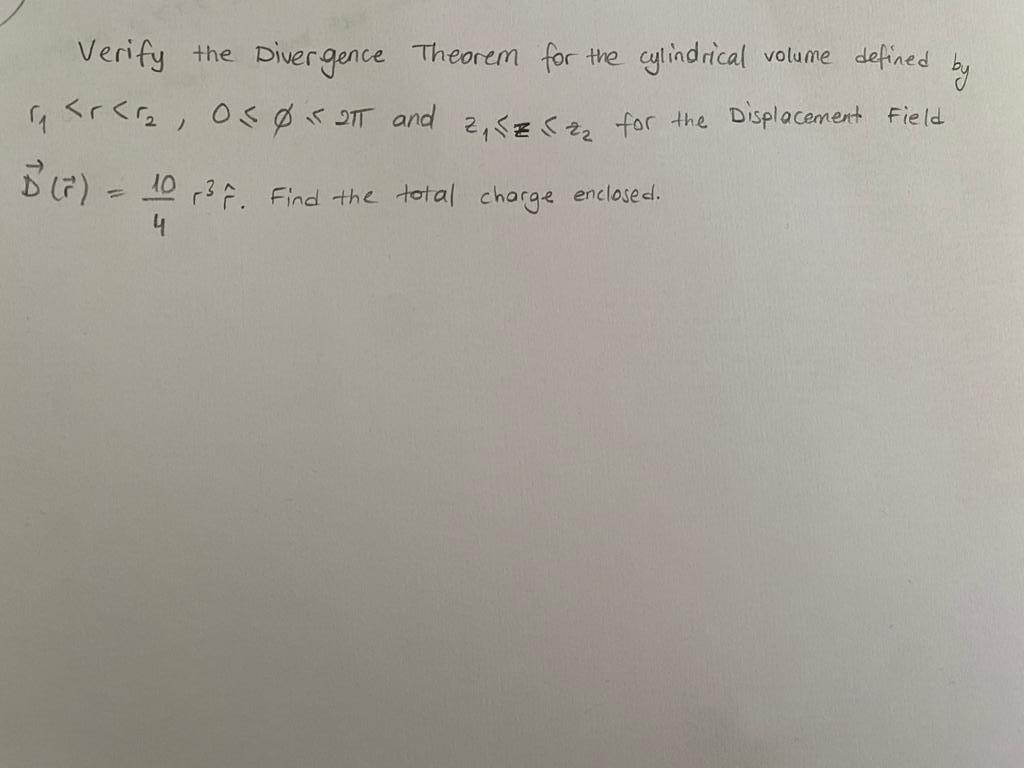 Verify the Divergence Theorem for the cylindrical volume defined by
r₁ < r < r₂ , 0 ≤ ø ≤ 2π and z₁ ≤ z ≤ z₂ for the Displacement Field
D⃗(r⃗) = 10/4 r³ r̂. Find the total charge enclosed.